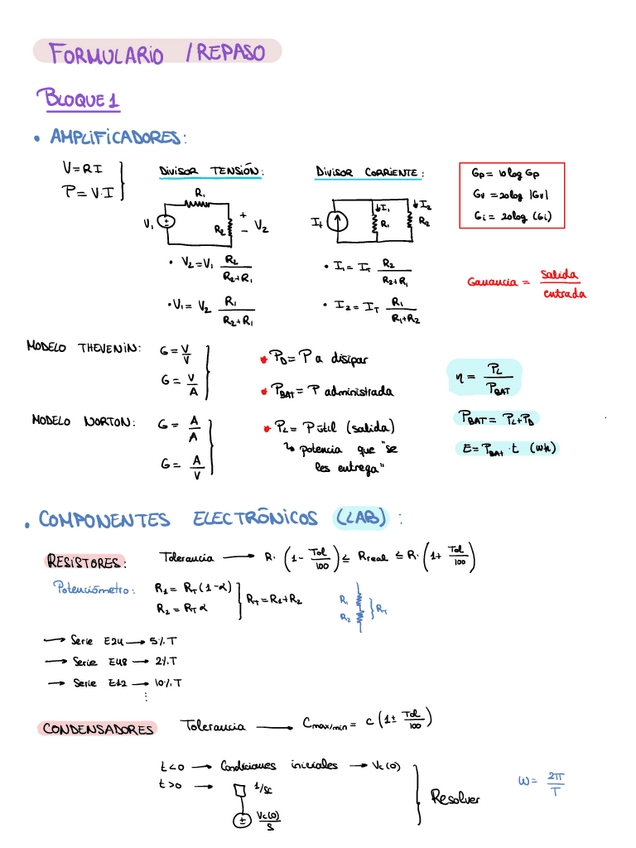 FORMULARIO / REPASO
BLOQUE 1
• AMPLIFICADORES:
V=RI
P=V·I
DIVISOR TENSIÓN:
R₁
V₁
R₂
+
-
V₂
• V₂=V₁ R₂/(R₂+R₁)
• V₁= V₂ R₁/(R₂+R₁)
DIVISOR CORRIENTE:
I_T
↓I₁
R₁
↓I₂
R₂
• I₁= I_T R₂/(R₂+R₁)
• I₂= I_T R₁/(R₁+R₂)
Gp= 10log Gp
Gv =20log |Gv|
Gi = 20log (Gi)
Ganancia = salida/entrada
MODELO THEVENIN: G= V/V
G= V/A
MODELO NORTON: G= A/A
G= A/V
• P_D= P a disipar
• P_BAT= P administrada
• P_L= P útil (salida)
↳ potencia que "se
les entrega"
η= P_L/P_BAT
P_BAT= P_L+P_D
E= P_BAT · t (Wh)
• COMPONENTES ELECTRÓNICOS (LAB) :
RESISTORES: Tolerancia → R· (1- Tol/100) ≤ Rreal ≤ R· (1+ Tol/100)
Potenciómetro: R₁= R_T (1-α)
R₂= R_T α
R_T= R₁+R₂
R₁
R₂
R_T
→ Serie E24 → 5% T
→ Serie E48 → 2% T
→ Serie E12 → 10% T
⋮
CONDENSADORES Tolerancia → Cmax/min = C (1± Tol/100)
t<0 → Condiciones iniciales → Vc(0)
t>0 → 1/sC
Vc(0)/S
Resolver
ω= 2π/T